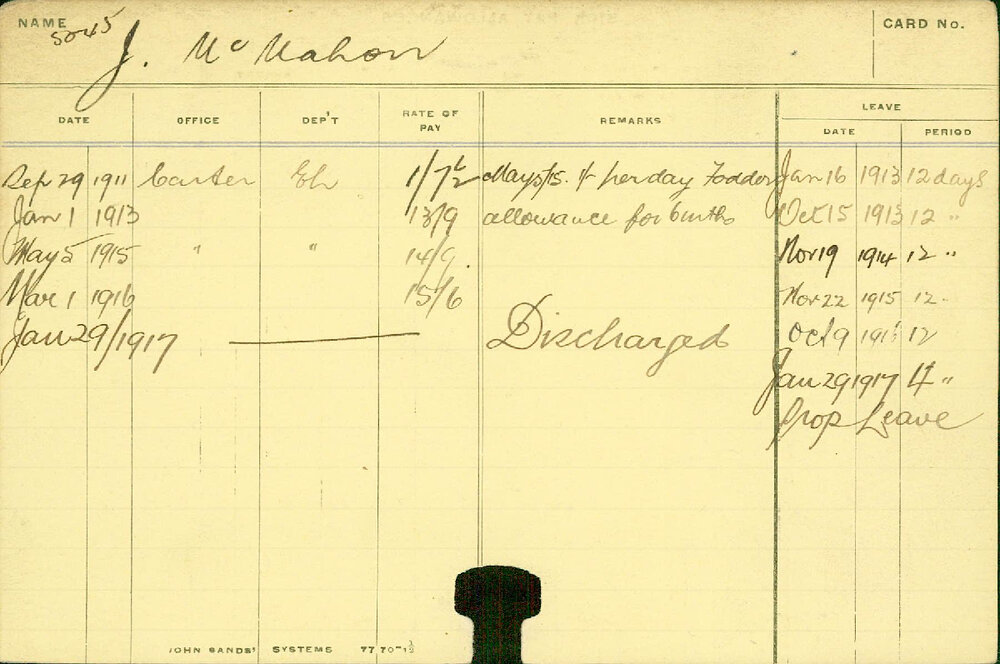 NAME CARD No.
5245 J. McMahon
LEAVE
DATE OFFICE DEP'T RATE OF PAY REMARKS DATE PERIOD
Sep 29 1911 Carter 1/7½ May 5/15. 1/- per day Fodder Jan 16 1913 12 days
Jan 1 1913 13/9 allowance for 6 mths Oct 15 1913 12 "
May 5 1915 " " 14/9. Nov 19 1914 12 "
Mar 1 1916 15/6 Nov 22 1915 12 "
Jan 29/1917 Discharged Oct 9 1916 12
Jan 29 1917 4 "
Prop Leave
JOHN SANDS' SYSTEMS